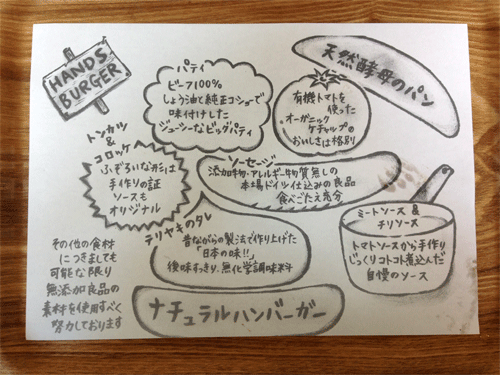 HANDS
BURGER
パティ
ビーフ100%
しょう油と純正コショーで
味付けした
ジューシーなビッグパティ
天然酵母のパン
有機トマトを
使った
オーガニック
ケチャップの
おいしさは格別
トンカツ
&
コロッケ
ふぞろいな形は
手作りの証
ソースも
オリジナル
ソーセージ
添加物・アレルギー物質無しの
本場ドイツ仕込みの良品
食べごたえ充分
テリヤキのタレ
昔ながらの製法で作り上げた
「日本の味!!」
後味すっきり、無化学調味料
ミートソース &
チリソース
トマトソースから手作り
じっくりコトコト煮込んだ
自慢のソース
その他の食材
につきましても
可能な限り
無添加良品の
素材を使用すべく
努力しております
ナチュラルハンバーガー